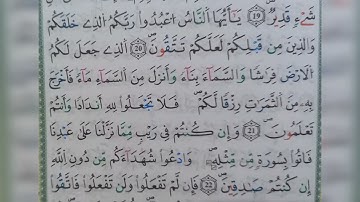 شَےْءٖ قَدِيرٞ 19 يَٰٓأَيُّهَا اَ۬لنَّاسُ اُ۟عْبُدُواْ رَبَّكُمُ اُ۬لذِے خَلَقَكُمْ
وَالذِينَ مِن قَبْلِكُمْ لَعَلَّكُمْ تَتَّقُونَ 20 اَ۬لذِے جَعَلَ لَكُمُ
اُ۬لَارْضَ فِرَٰشاٗ وَالسَّمَآءَ بِنَآءٗ وَأَنزَلَ مِنَ اَ۬لسَّمَآءِ مَآءٗ فَأَخْرَجَ
بِهِۦ مِنَ اَ۬لثَّمَرَٰتِ رِزْقاٗ لَّكُمْ فَلَا تَجْعَلُواْ لِلهِ أَندَاداٗ وَأَنتُمْ
تَعْلَمُونَ 21 وَإِن كُنتُمْ فِے رَيْبٖ مِّمَّا نَزَّلْنَا عَلَىٰ عَبْدِنَا
فَاتُواْ بِسُورَةٖ مِّن مِّثْلِهِۦ وَادْعُواْ شُهَدَآءَكُم مِّن دُونِ اِ۬للَّهِ
إِن كُنتُمْ صَٰدِقِينَ 22 فَإِن لَّمْ تَفْعَلُواْ وَلَن تَفْعَلُواْ فَاتَّقُواْ